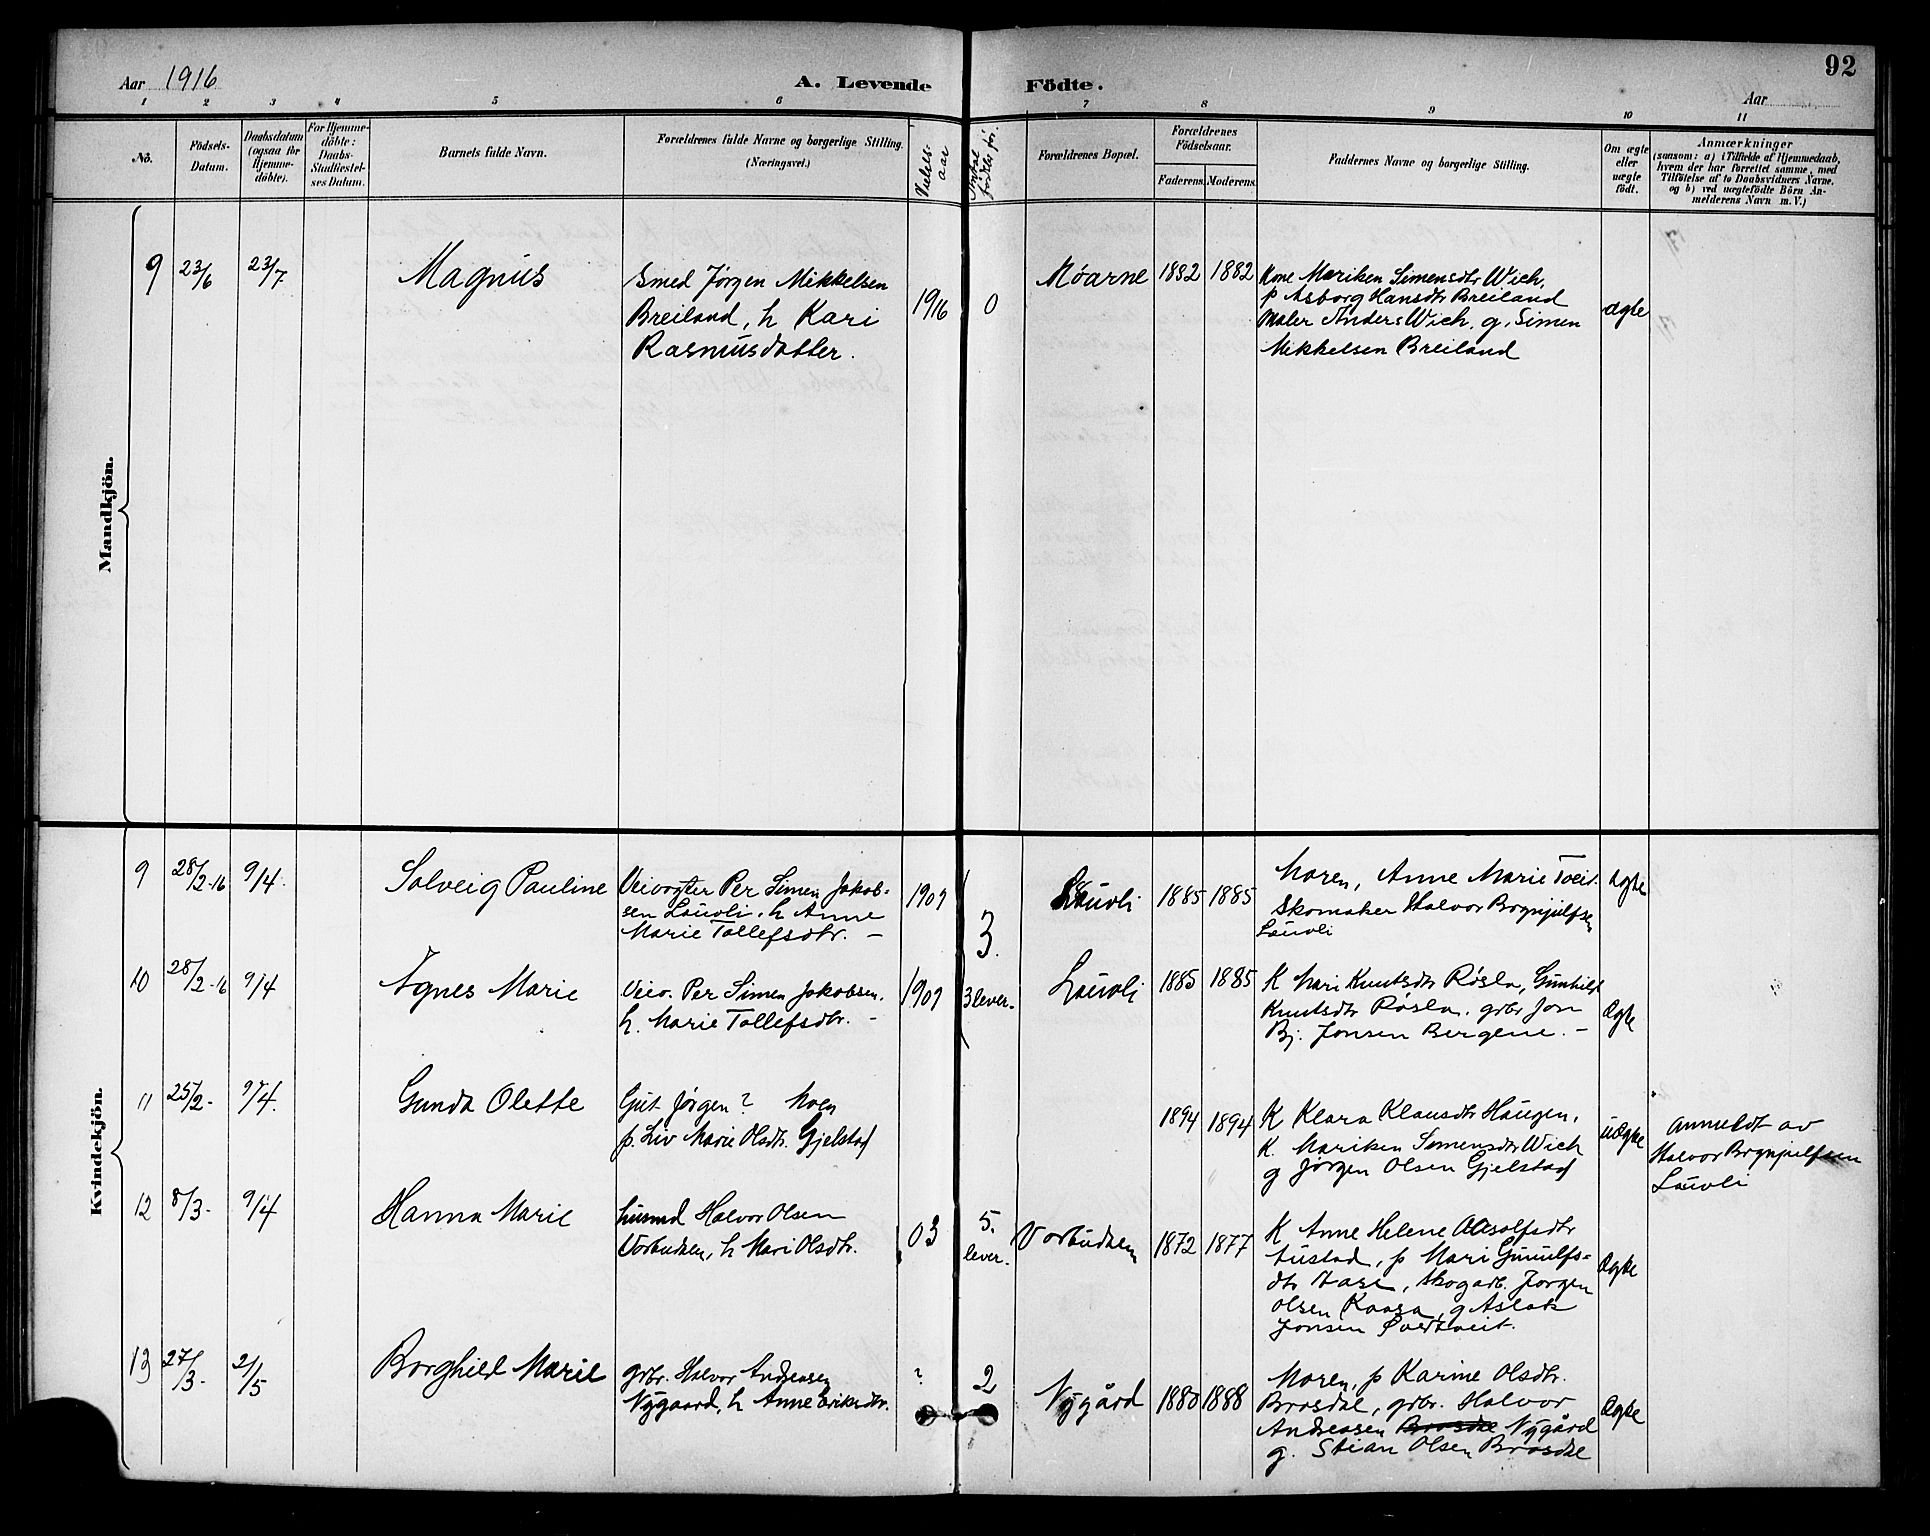 92
Aar 1916
A. Levende Födte.
Aar
1 2 3 4 5 6 7 8 9 10 11
Nö.
Födsels-Datum.
Daabsdatum (ogsaa for Hjemme-döbte).
For Hjemme-döbte: Daabs-Stadfæstel-ses Datum.
Barnets fulde Navn.
Forældrenes fulde Navne og borgerlige Stilling. (Næringsvei.)
Vielses-aar
Antal födsler før.
Forældrenes Bopæl.
Forældrenes Födselsaar.
Faderens. Moderens.
Faddernes Navne og borgerlige Stilling.
Om ægte eller uægte födt.
Anmærkninger
(saasom: a) i Tilfælde af Hjemmedaab,
hvem der har forrettet samme, med
Tilföielse af to Daabsvidners Navne.
og b) ved uægtefödte Börn An-
melderens Navn m. V.)
Mandkjön.
9 23/6 23/7 Magnus
Smed Jørgen Mikkelsen
Breiland, h Kari
Rasmusdatter.
1916 0 Moarne 1882 1882
Kone Mariken Simensdtr Wich,
p Asborg Hansdtr Breiland
Maler Anders Wich, g. Simen
Mikkelsen Breiland
ægte
Kvindekjön.
9 28/2-16 9/4. Solveig Pauline
Veivogter Per Simen Jakob-
sen Lauvli, h Anne
Marie Tollefsdtr. –
1909 3. Lauvli 1885 1885
Moren, Anne Marie Tveit.
Skomaker Halvor Brynjulfsen
Lauvli
ægte
10 28/2-16 9/4 Agnes Marie
Veiv. Per Simen Jakobsen,
h. Marie Tollefsdtr. –
1909 3 lever. Lauvli 1885 1885
K Mari Knutsdtr Røsla, Gunhild
Knutsdtr Røsla. grbr Jon
Bj. Jonsen Bergene. –
Ægte
11 25/2- 9/4. Gunda Olette
Gut Jørgen ? Moen
p. Liv Marie Olsdtr. Gjelstad
1894 1894
K Klara Klausdtr Haugen,
K. Mariken Simensdtr Wich
g Jørgen Olsen Gjelstad
uægte
anmeldt av
Halvor Brynjulfsen
Lauvli
12 8/3- 9/4 Hanna Marie
husmd Halvor Olsen
Vorbudsen, h Mari Olsdtr.
03 5. lever. Vorbudsen 1872 1877
K Anne Helene
p Mari Gunulfs-
dtr skogarb. Jørgen
Olsen Kaasa, g Aslak
Jonsen
Ægte
13 27/3- 2/5 Borghild Marie
grbr. Halvor Andreasen
Nygaard, h Anne Eriksdtr.
? 2 Nygård 1880 1888
Moren, p Karine Olsdtr.
Brosdal, grbr. Halvor
Andreasen Nygård
g. Stian Olsen Brosdal
Ægte